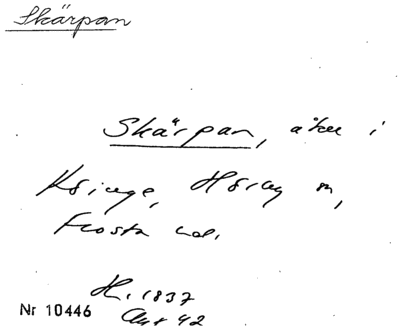 Skärpan
Skärpan, åker i
Ksinge, Hörby sn,
Frosta hd.
H. 1837
Nr 10446
Akt 42